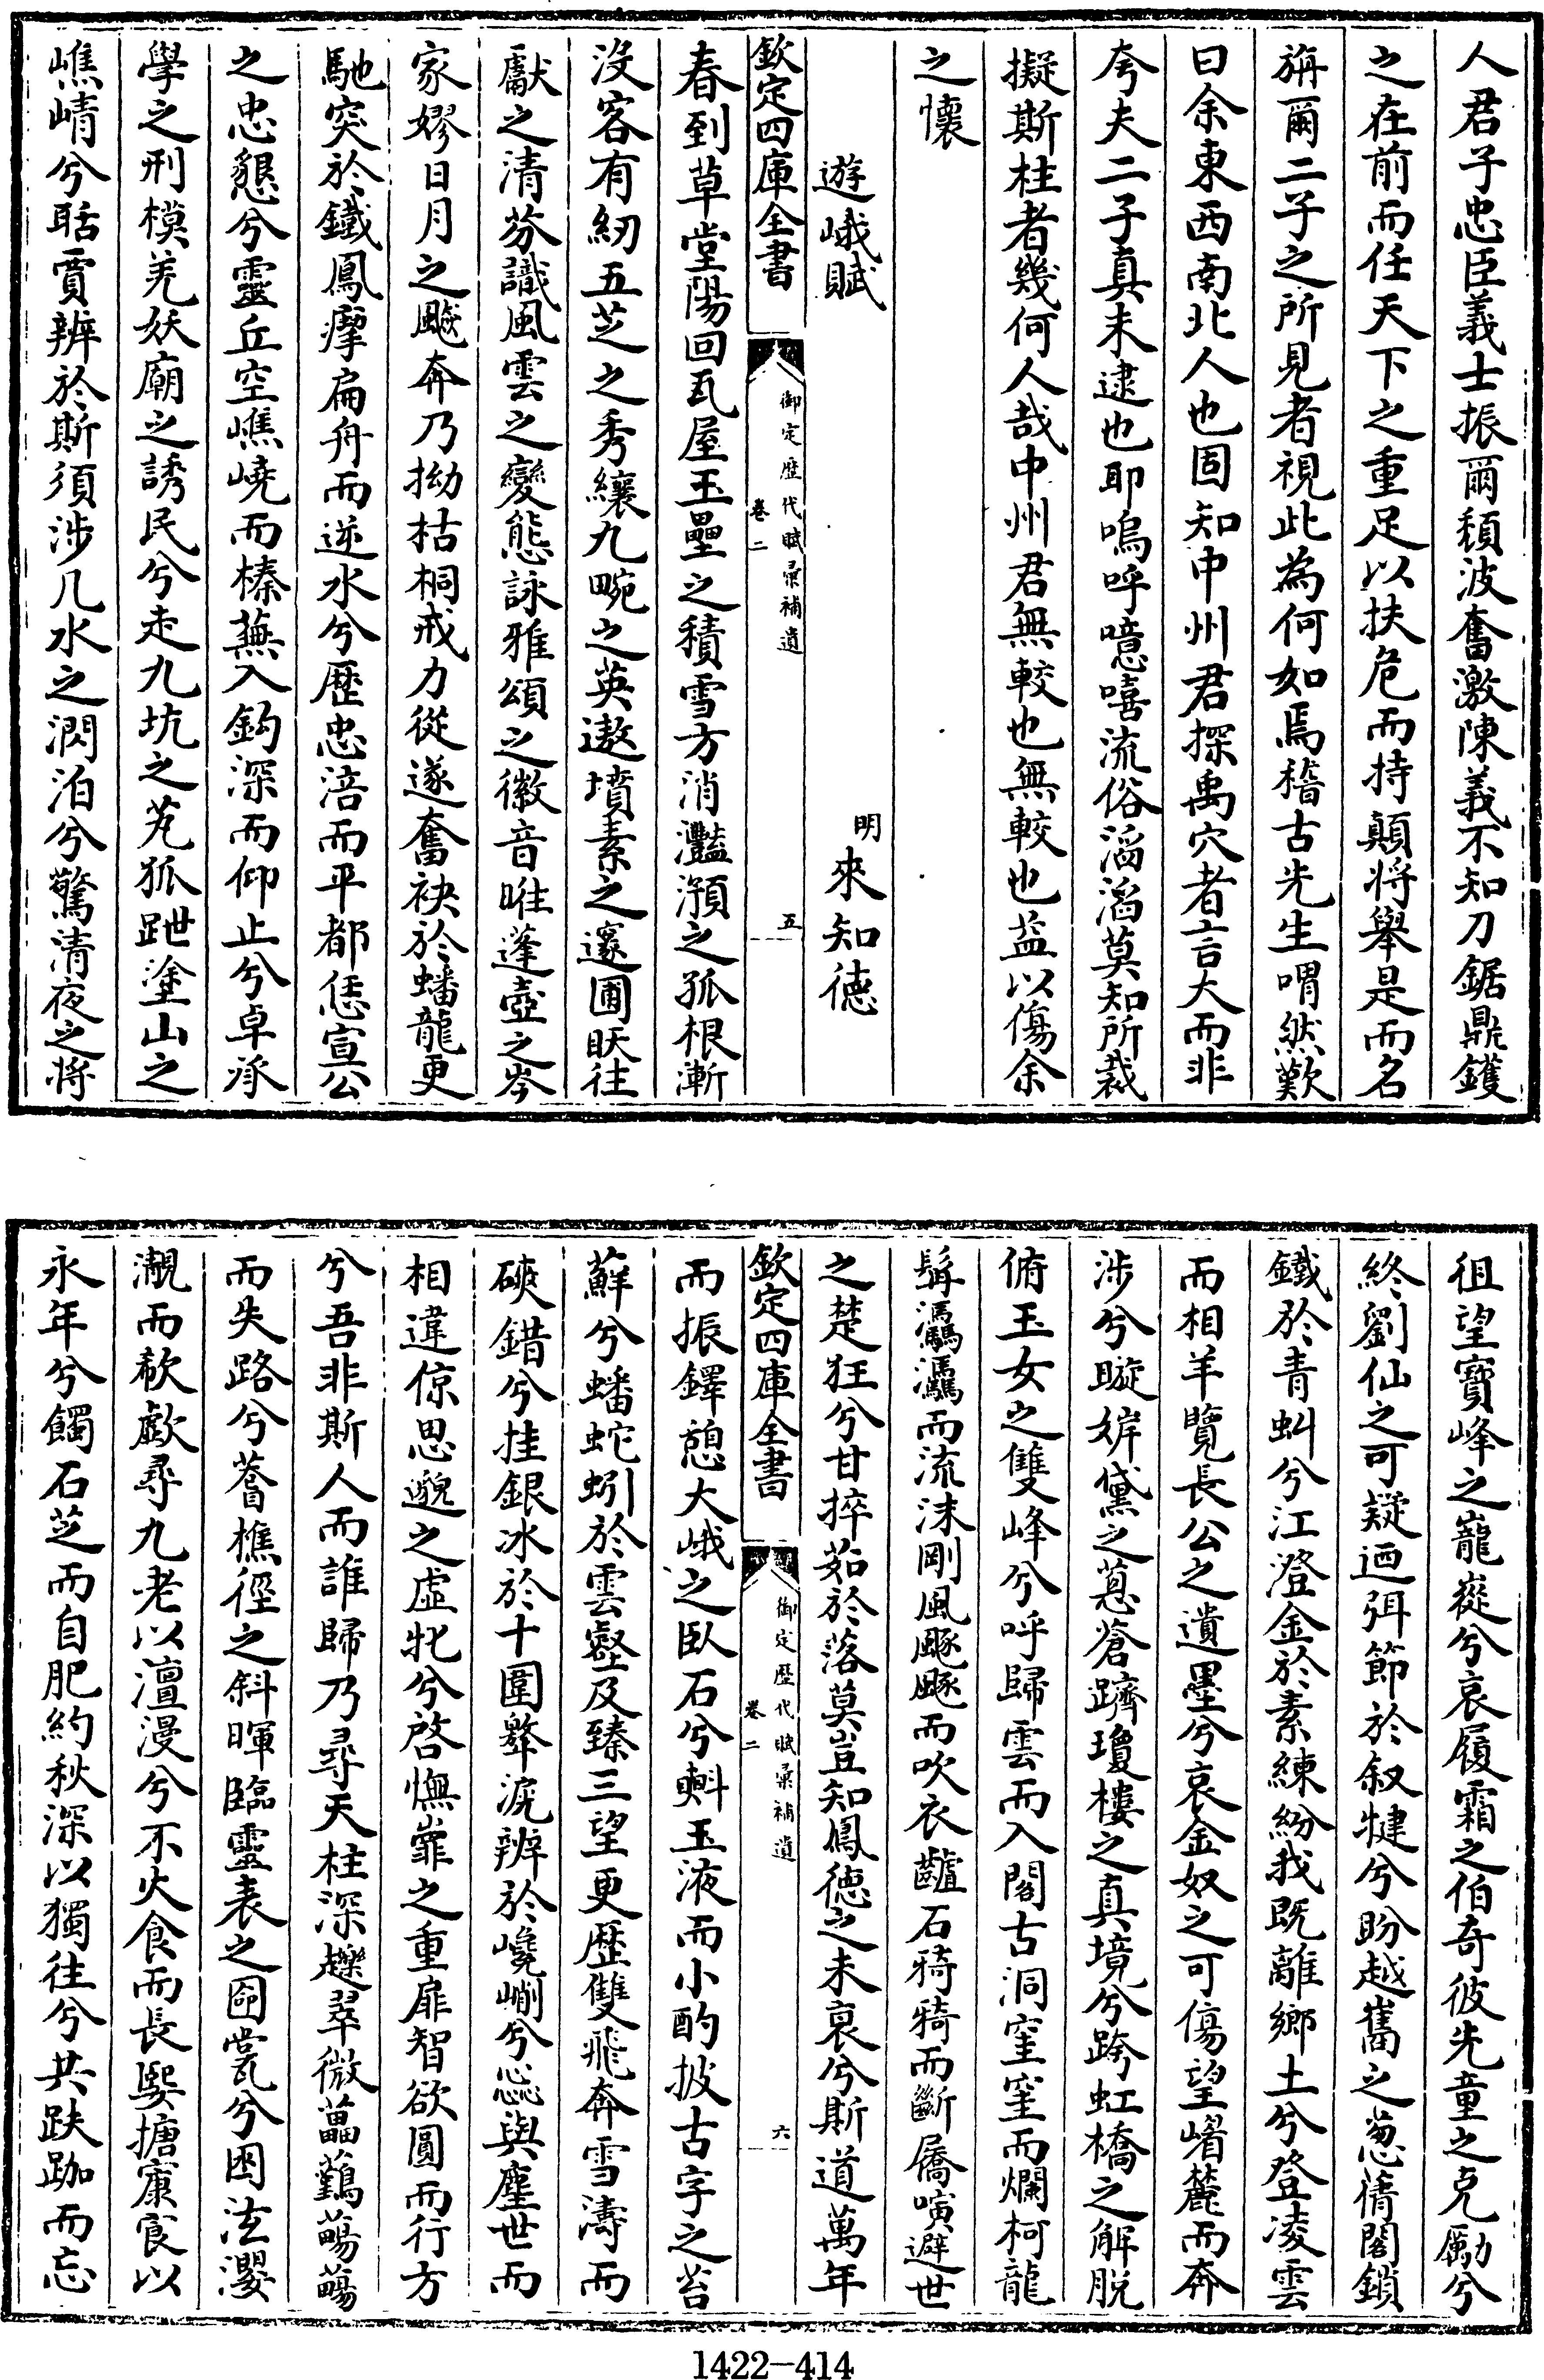 人君子忠臣義士振爾頽波奮激陳義不知刀鋸鼎鑊
之在前而任天下之重足以扶危而持顛将舉是而名
旃爾二子之所見者視此為何如焉稽古先生喟然歎
曰余東西南北人也固知中州君探禹穴者言大而非
夸夫二子真未逮也耶嗚呼噫嘻流俗滔滔莫知所裁
擬斯柱者幾何人哉中州君無較也無較也盖以傷余
之懷
遊峨賦 明來知德
欽定四庫全書 御定歴代賦彙補遺 卷二 五
春到草堂陽回瓦屋玉壘之積雪方消灩澦之孤根漸
沒客有紉五芝之秀纕九畹之英遨墳素之邃圃昳往
獻之清芬識風雲之變態詠雅頌之徽音睢蓬壺之岑
家嫪日月之飈奔乃拗枯桐戒力從遂奮袂於蟠龍更
馳突於鐵鳳㨻扁舟而逆水兮歴忠涪而平都恁宣公
之忠懇兮靈丘空嶕嶢而榛蕪入鈎深而仰止兮卓承
學之刑模羌妖廟之誘民兮走九坑之艽狐跐塗山之
嶕崝兮聒賣辨於斯須涉几水之㵎泊兮驚清夜之将
徂望寶峰之巃嵸兮哀履霜之伯奇彼先童之克勵兮
終劉仙之可疑迺弭節於叙犍兮盼越嶲之葱蒨閣鎖
鐵於青虯兮江澄金於素練紛我既離鄉土兮登凌雲
而相羊覽長公之遺墨兮哀金奴之可傷望㟙麓而奔
涉兮䁢㛁黛之葱蒼躋瓊樓之真境兮跨虹橋之解脱
俯玉女之雙峰兮呼歸雲而入閣古洞窒窒而爛柯龍
髯瀑瀑而流沫剛風飋飋而吹衣巇石猗猗而斷屩嚬避世
之楚狂兮甘捽茹於落莫豈知鳳德之未衰兮斯道萬年
欽定四庫全書 御定歴代賦彙補遺 卷二 六
而振鐸憩大峨之臥石兮㪺玉液而小酌披古字之苔
蘚兮蟠蛇蚓於雲壑及臻三望更歴雙飛奔雪濤而
硤錯兮挂銀冰於十圍犛淭辨於巉嵲兮惢與塵世而
相違倞思邈之虛牝兮啓憮巃之重扉智欲圓而行方
兮吾非斯人而誰歸乃尋天柱深趮翠微藟蘻蕩蕩
而失路兮蒼樵徑之斜暉臨靈表之圙甍兮困泫瀴
瀙而欷歔尋九老以澶漫兮不火食而長嬰搪康㝗以
永年兮餟石芝而自肥約秋深以獨往兮共趺跏而忘
1422-414